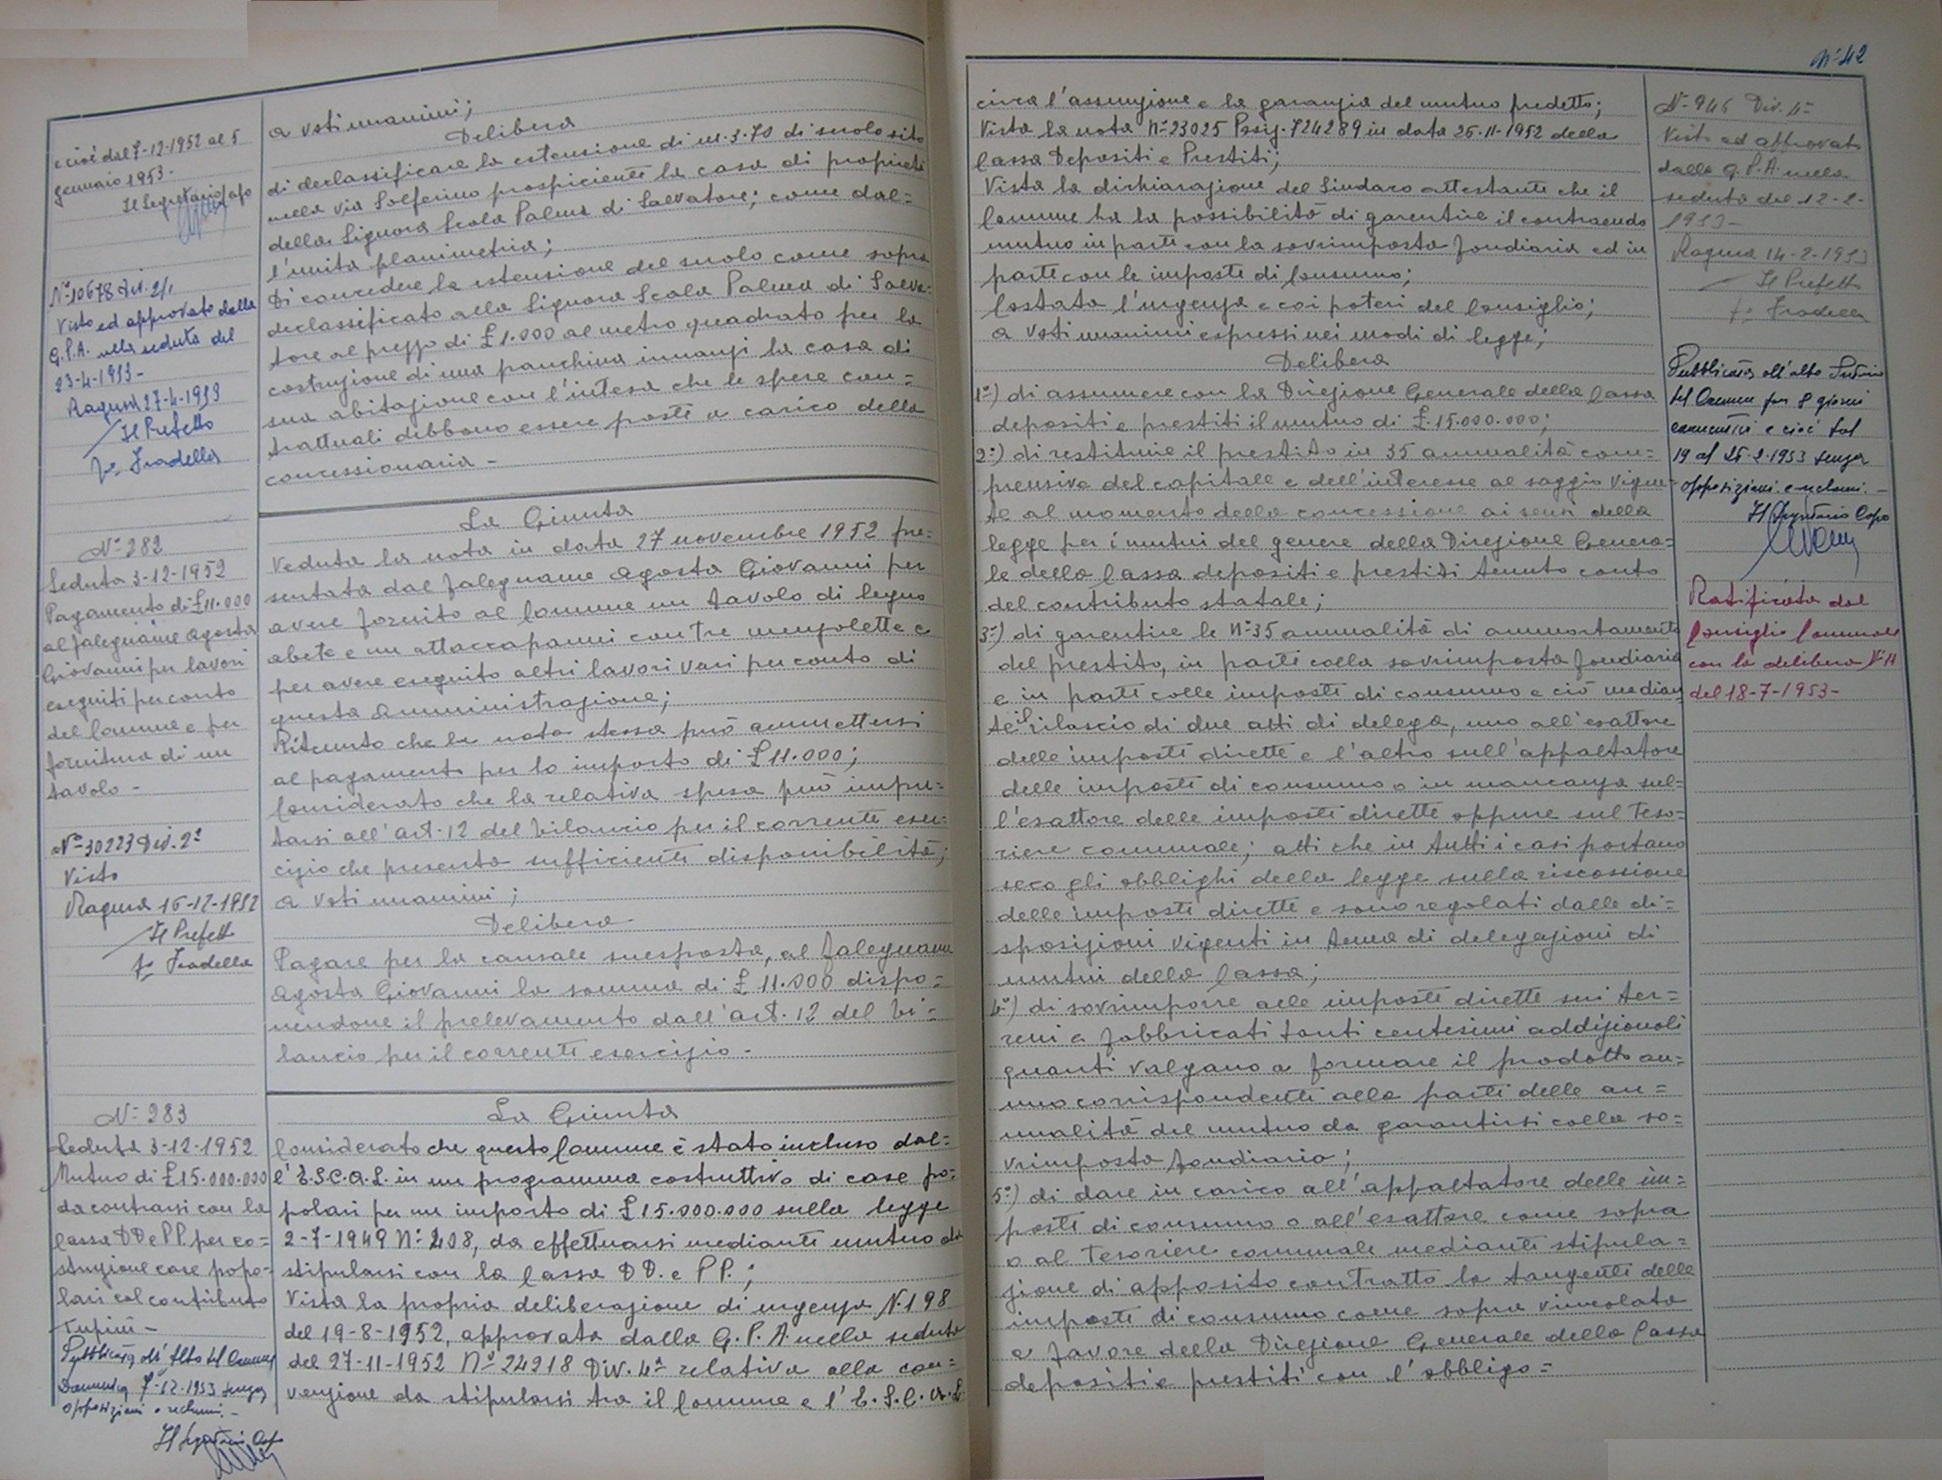 e cioè dal 7-12-1952 al 5
gennaio 1953.-
Il Segretario Capo
N° 10678 Div. 2/1
Visto ed approvato dalla
G.P.A. nella seduta del
23-4-1953-
Ragusa 27-4-1953
Il Prefetto
fo Fradella
N° 282
Seduta 3-12-1952
Pagamento di £11.000
al falegname Agosta
Giovanni per lavori
eseguiti per conto
del Comune e per
fornitura di un
tavolo-
N° 30223 Div. 2ª
Visto
Ragusa 16-12-1952
Il Prefetto
fo Fradella
N° 283
Seduta 3-12-1952
Mutuo di £15.000.000
da contrarsi con la
Cassa DD e PP. per co=
struzione case popo=
lari col contributo
Pubblicata all'Albo del Comune
Domenica 7-12-1953 senza
opposizioni o reclami.-
Il Segretario Capo
a voti unanimi;
Delibera
di declassificare la estensione di m. 3.70 di suolo sito
nella via Solferino prospiciente la casa di proprietà
della Signora Scala Palma di Salvatore; come dal=
l'unita planimetria;
Di concedere la estensione del suolo come sopra
declassificato alla Signora Scala Palma di Salva=
tore al prezzo di £1.000 al metro quadrato per la
costruzione di una panchina innanzi la casa di
sua abitazione con l'intesa che le spese con=
trattuali debbono essere poste a carico della
concessionaria-
La Giunta
Veduta la nota in data 27 novembre 1952 pre=
sentata dal falegname Agosta Giovanni per
avere fornito al Comune un tavolo di legno
abete e un attaccapanni con tre mensolette e
per avere eseguito altri lavori vari per conto di
questa Amministrazione;
Ritenuto che la nota stessa può ammettersi
al pagamento per lo importo di £11.000;
Considerato che la relativa spesa può impu=
tarsi all'art. 12 del bilancio per il corrente eser=
cizio che presenta sufficiente disponibilità;
a voti unanimi;
Delibera
Pagare per la causale suesposta, al falegname
Agosta Giovanni la somma di £ 11.000 dispo=
nendone il prelevamento dall'art. 12 del bi=
lancio per il corrente esercizio-
La Giunta
Considerato che questo Comune è stato incluso dal=
l'E.S.C.A.L. in un programma costruttivo di case po=
polari per un importo di £15.000.000 sulla legge
2-7-1949 N° 408, da effettuarsi mediante mutuo da
stipularsi con la Cassa DD. e PP.;
Vista la propria deliberazione di urgenza N. 198
del 19-8-1952, approvata dalla G.P.A nella seduta
del 27-11-1952 N° 24218 Div. 4ª relativa alla con=
venzione da stipularsi tra il Comune e l'E.S.C.A.L.
N° 42
circa l'assunzione e la garanzia del mutuo predetto;
Vista la nota N° 23025 Posiz. 724289 in data 26-11-1952 della
Cassa Depositi e Prestiti;
Vista la dichiarazione del Sindaco attestante che il
Comune ha la possibilità di garentire il contraendo
mutuo in parte con la sovrimposta fondiaria ed in
parte con le imposte di Consumo;
Costata l'urgenza e coi poteri del Consiglio;
a voti unanimi espressi nei modi di legge;
Delibera
1°) di assumere con la Direzione Generale della Cassa
depositi e prestiti il mutuo di £.15.000.000;
2°) di restituire il prestito in 35 annualità com=
prensive del capitale e dell'interesse al saggio vigen=
te al momento della concessione ai sensi della
legge per i mutui del genere della Direzione Genera=
le della Cassa depositi e prestiti tenuto conto
del contributo statale;
3°) di garentire le N° 35 annualità di ammortamento
del prestito, in parte colla sovrimposta fondiaria
e in parte colle imposte di consumo e ciò median
te il rilascio di due atti di delega, uno all'esattore
delle imposte dirette e l'altro sull'appaltatore
delle imposte di consumo o in mancanza sul=
l'esattore delle imposte dirette oppure sul Teso=
riere comunale; atti che in tutti i casi portano
seco gli obblighi della legge sulla riscossione
delle imposte dirette e sono regolati dalle di=
sposizioni vigenti in tema di delegazioni di
mutui della Cassa;
4°) di sovrimporre alle imposte dirette sui ter=
reni e fabbricati tanti centesimi addizionali
quanti valgano a formare il prodotto an=
nuo corrispondente alla parte delle an=
nualità del mutuo da garantirsi colla so=
vrimposta fondiaria;
5°) di dare in carico all'appaltatore delle im=
poste di consumo o all'esattore come sopra
o al Tesoriere comunale mediante stipula=
zione di apposito contratto la tangente delle
imposte di consumo come sopra vincolata
a favore della Direzione Generale della Cassa
depositi e prestiti con l'obbligo=
N° 946 Div. 4ª
Visto ed approvato
dalla G.P.A. nella
seduta del 12-2-
1953-
Ragusa 14-2-1953
Il Prefetto
fo Fradella
Pubblicata all'albo Pretorio
del Comune per 8 giorni
consecutivi e cioè dal
19 al 26-2-1953 senza
opposizioni e reclami.-
Il Segretario Capo
Ratificata dal
Consiglio Comunale
con la delibera N° 14
del 18-7-1953-